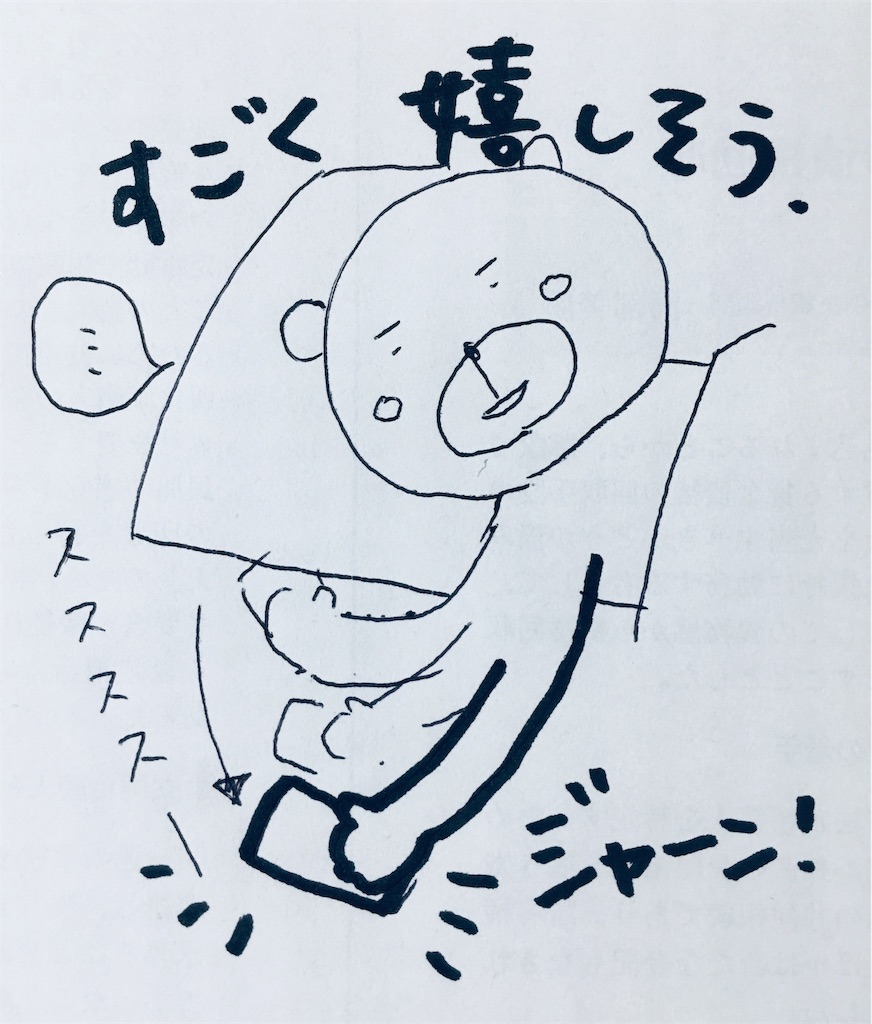 すごく 嬉しそう.
...
スススス
ジャーン!